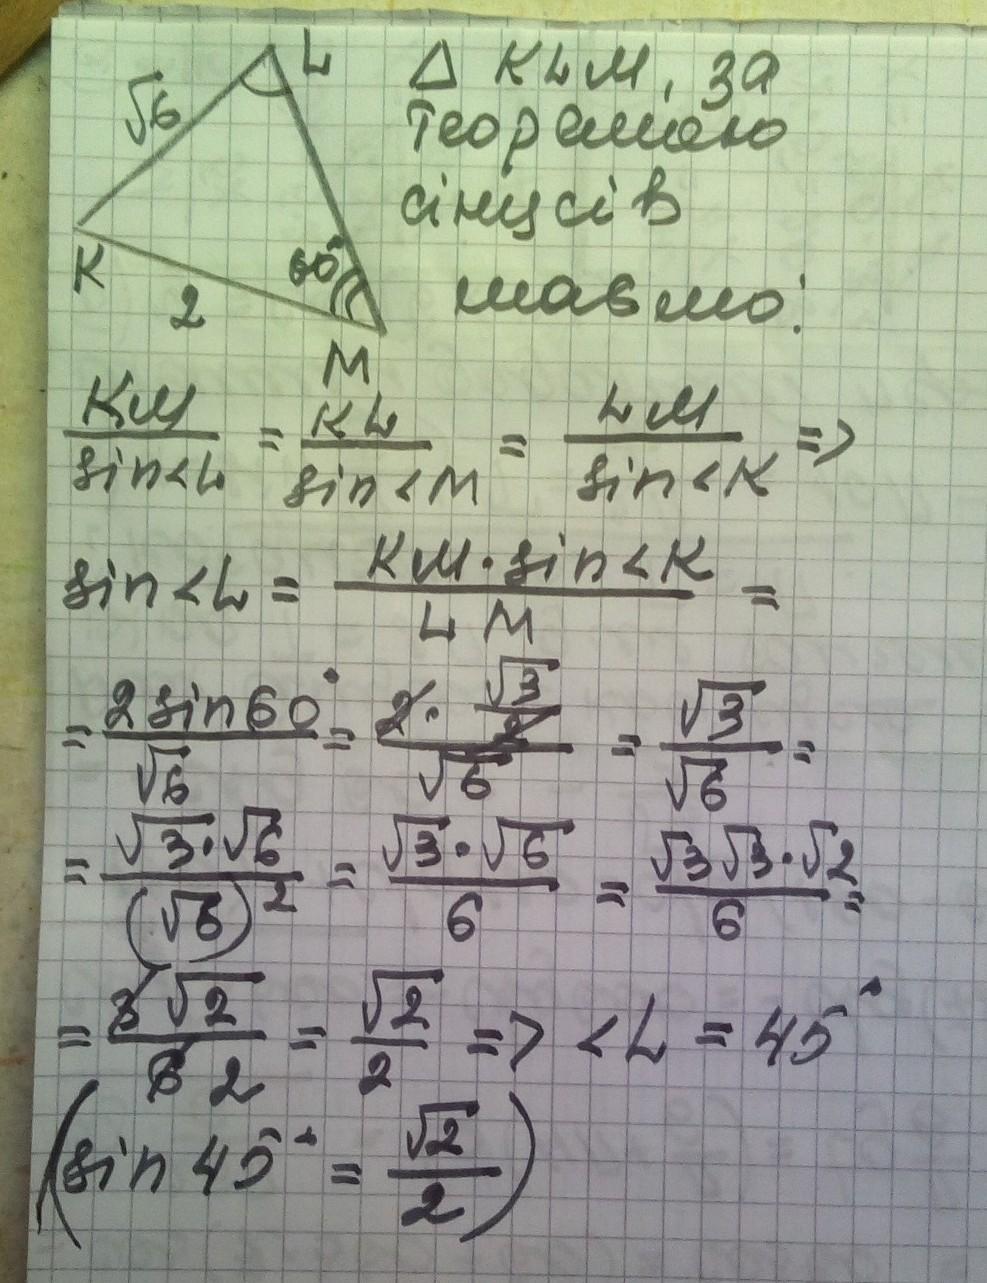 √6 L
K 2 60° M
△ KLM, за
теоремою
сінусів
маємо:
KM/sin<L = KL/sin<M = LM/sin<K =>
sin<L = KM·sin<K/LM =
= 2sin60°/√6 = 2·√3/2/√6 = √3/√6 =
= √3·√6/(√6)² = √3·√6/6 = √3√3·√2/6 =
= 3√2/6 2 = √2/2 => <L = 45°
(sin45° = √2/2)